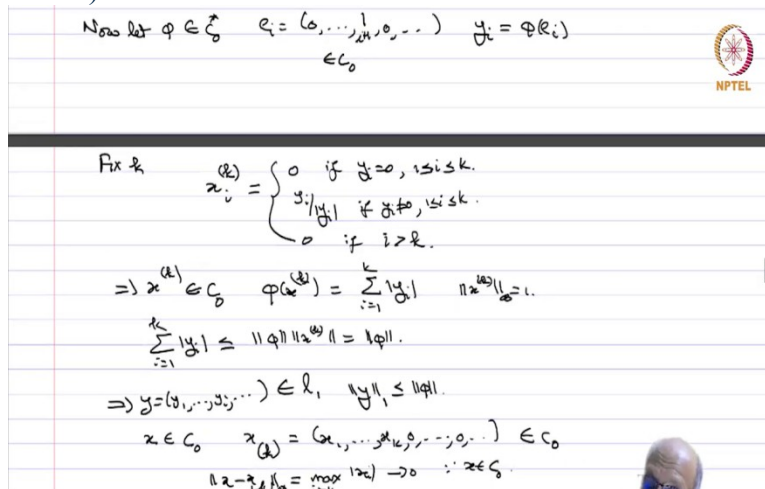 Now let φ ∈ c₀* eᵢ = (0, ..., 1, 0, ...) yᵢ = φ(eᵢ)
iᵗʰ
∈ C₀
NPTEL
Fix k xᵢ⁽ᵏ⁾ = { 0 if yᵢ=0, 1≤i≤k.
yᵢ/|yᵢ| if yᵢ≠0, 1≤i≤k.
0 if i>k.
⇒ x⁽ᵏ⁾ ∈ C₀ φ(x⁽ᵏ⁾) = Σᵢ₌₁ᵏ |yᵢ| ‖x⁽ᵏ⁾‖∞ = 1.
Σᵢ₌₁ᵏ |yᵢ| ≤ ‖φ‖ ‖x⁽ᵏ⁾‖ = ‖φ‖.
⇒ y=(y₁,...,yᵢ,...) ∈ l₁ ‖y‖₁ ≤ ‖φ‖.
x ∈ C₀ x₍ₖ₎ = (x₁,...,xₖ,0,...,0,..) ∈ C₀
= max |xᵢ| → 0 ∵ x∈C₀.